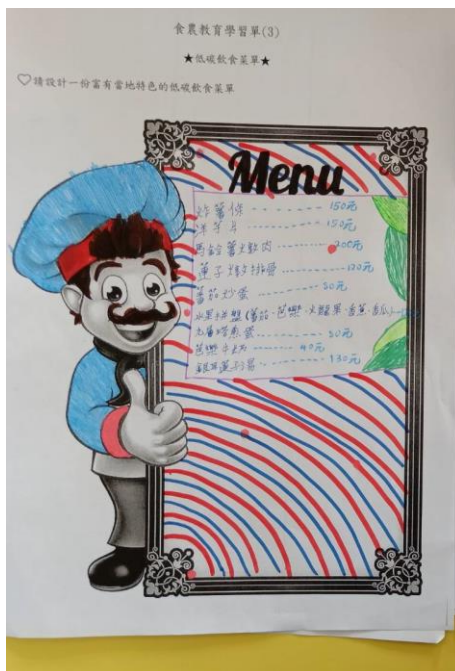 食農教育學習單(3)
★低碳飲食菜單★
♡請設計一份富有當地特色的低碳飲食菜單
Menu
炸薯條 150元
洋芋片 150元
馬鈴薯燉肉 200元
蓮子燉排骨 120元
蕃茄炒蛋 50元
水果拼盤(蕃茄、芭樂、火龍果、香蕉、香瓜)
皮蛋 50元
芭樂牛奶 40元
銀耳蓮子湯 130元